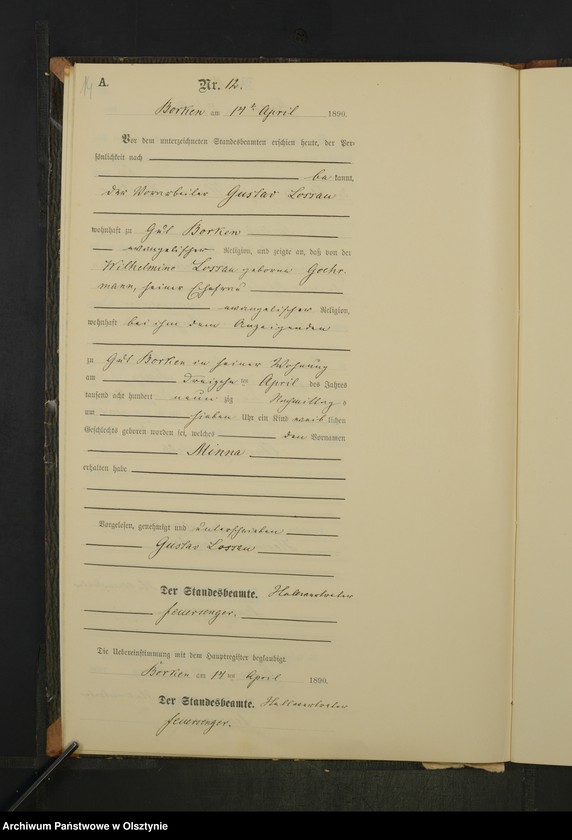 14
A.
Nr. 12.
Borken am 14ten April 1890.
Vor dem unterzeichneten Standesbeamten erschien heute, der Per-
sönlichkeit nach
be kannt,
der Vorarbeiter Gustav Lossau
wohnhaft zu Gut Borken
evangelischer Religion, und zeigte an, daß von der
Wilhelmine Lossau geborne Goehr-
mann, seiner Ehefrau
evangelischer Religion,
wohnhaft bei ihm dem Anzeigenden
zu Gut Borken in seiner Wohnung
am dreizehnten April des Jahres
tausend acht hundert neun zig Nachmittags
um sieben Uhr ein Kind weib lichen
Geschlechts geboren worden sei, welches den Vornamen
Minna
erhalten habe
Vorgelesen, genehmigt und unterschrieben
Gustav Lossau
Der Standesbeamte.
Feuersenger.
Die Uebereinstimmung mit dem Hauptregister beglaubigt.
Borken am 14ten April 1890.
Der Standesbeamte.
Feuersenger.
Archiwum Państwowe w Olsztynie